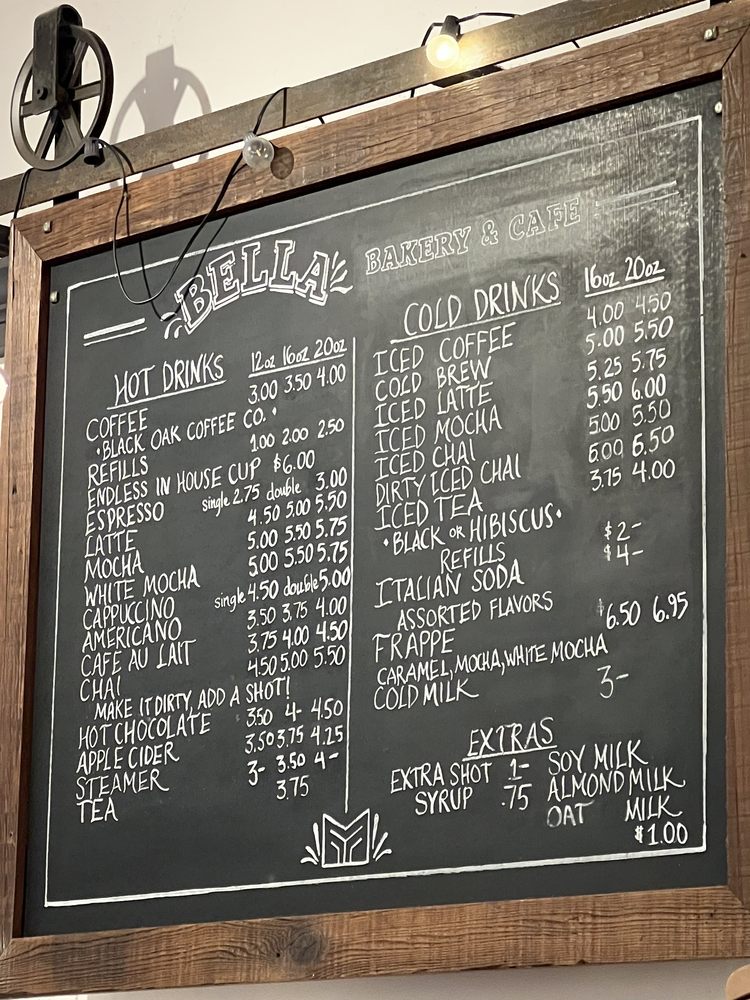 BELLA
BAKERY & CAFE
HOT DRINKS 12oz 16oz 20oz
COFFEE 3.00 3.50 4.00
• BLACK OAK COFFEE CO. •
REFILLS 1.00 2.00 2.50
ENDLESS IN HOUSE CUP $6.00
ESPRESSO single 2.75 double 3.00
LATTE 4.50 5.00 5.50
MOCHA 5.00 5.50 5.75
WHITE MOCHA 5.00 5.50 5.75
CAPPUCCINO single 4.50 double 5.00
AMERICANO 3.50 3.75 4.00
CAFE AU LAIT 3.75 4.00 4.50
CHAI 4.50 5.00 5.50
MAKE IT DIRTY, ADD A SHOT!
HOT CHOCOLATE 3.50 4- 4.50
APPLE CIDER 3.50 3.75 4.25
STEAMER 3- 3.50 4-
TEA 3.75
COLD DRINKS 16oz 20oz
ICED COFFEE 4.00 4.50
COLD BREW 5.00 5.50
ICED LATTE 5.25 5.75
ICED MOCHA 5.50 6.00
ICED CHAI 5.00 5.50
DIRTY ICED CHAI 6.00 6.50
ICED TEA 3.75 4.00
• BLACK OR HIBISCUS •
REFILLS $2-
ITALIAN SODA $4-
ASSORTED FLAVORS
FRAPPE $6.50 6.95
CARAMEL, MOCHA, WHITE MOCHA
COLD MILK 3-
EXTRAS
EXTRA SHOT 1-
SYRUP .75
SOY MILK
ALMOND MILK
OAT MILK
$1.00